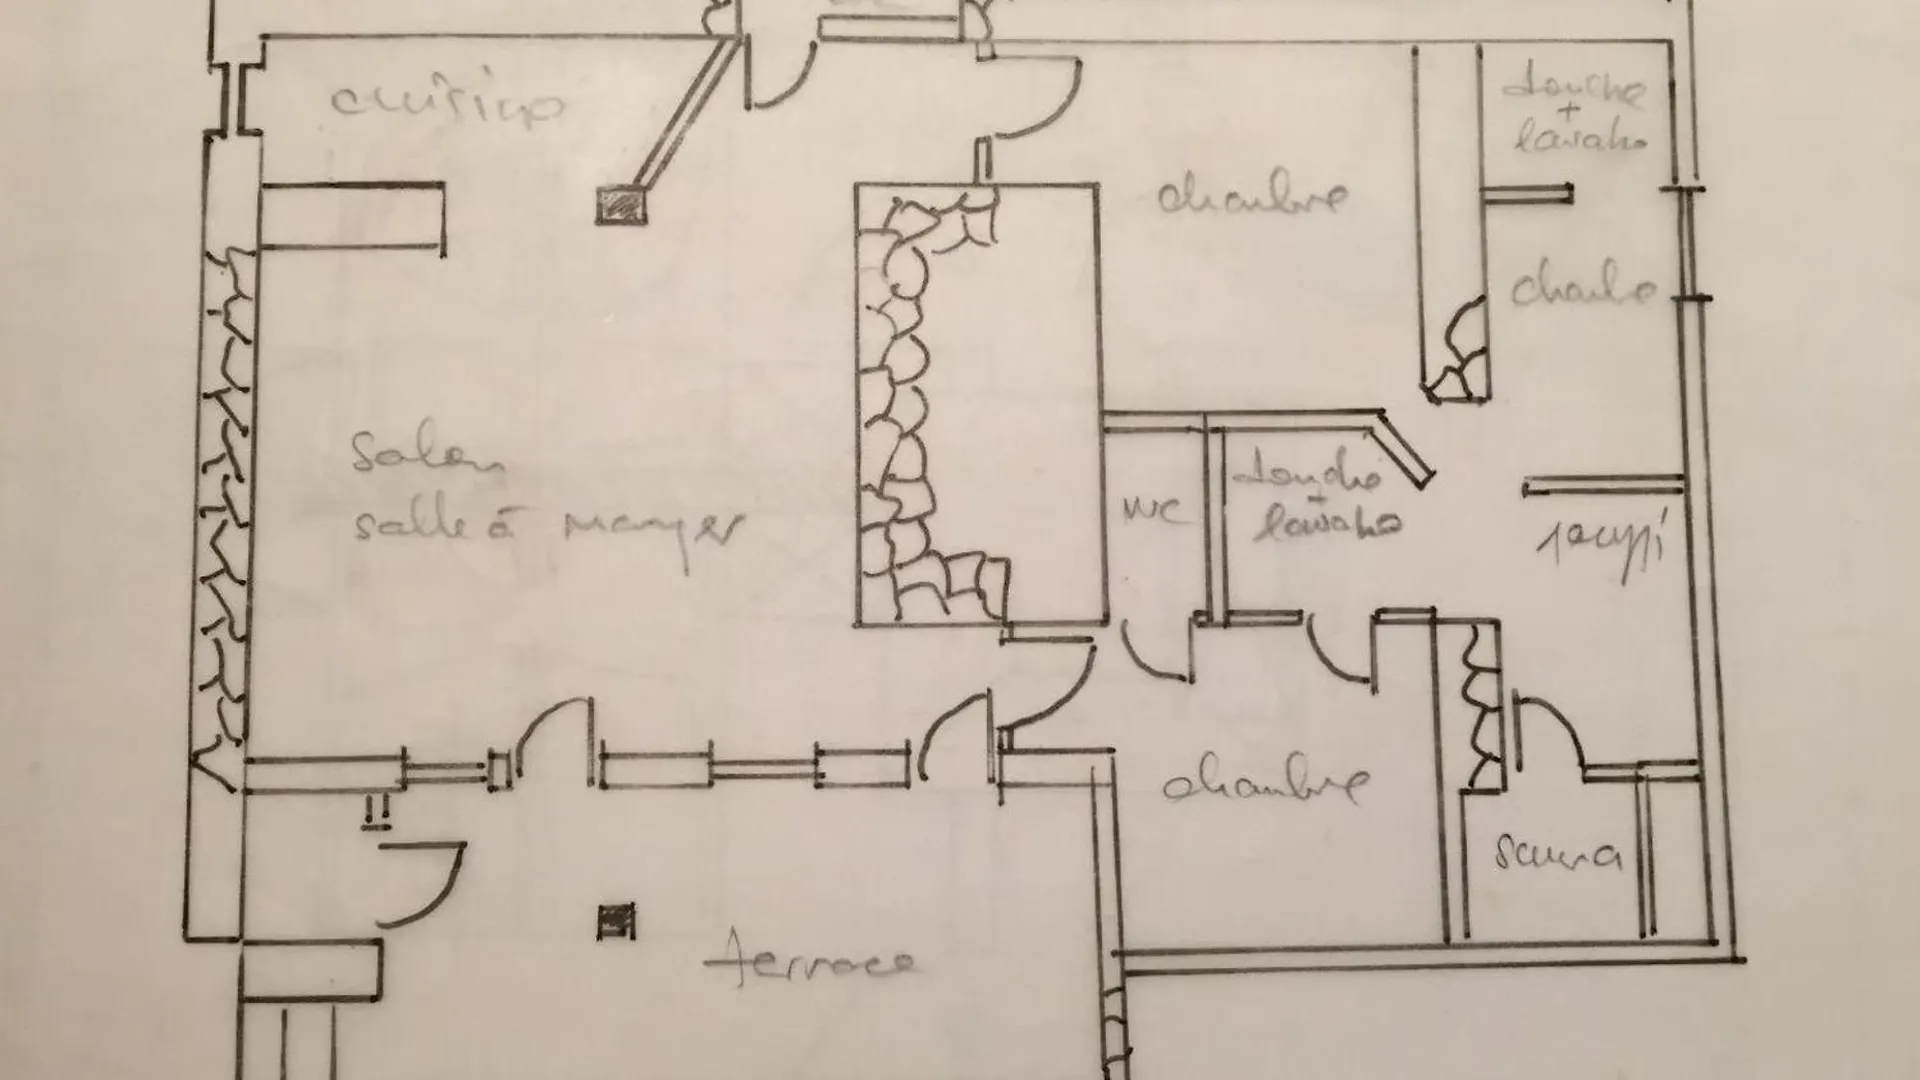 cuisine
douche
+
lavabo
chambre
chambre
salon
salle à manger
WC
douche
+
lavabo
chambre
sauna
terrace